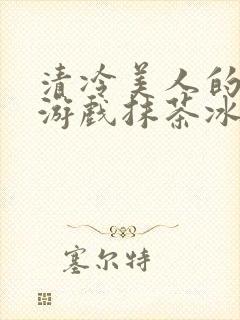 清冷美人的
游戏抹茶冰
塞尔特